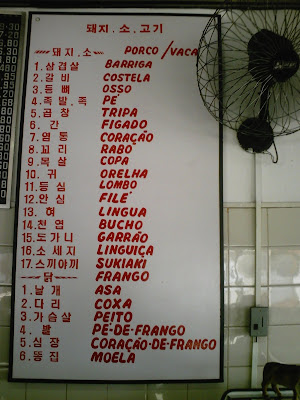 돼지.소.고기
돼지.소 PORCO/VACA
1.삼겹살 BARRIGA
2.갈비 COSTELA
3.등뼈 OSSO
4.족발.족 PÉ
5.곱창 TRIPA
6.간 FIGADO
7.염통 CORAÇÃO
8.꼬리 RABO
9.목살 COPA
10.귀 ORELHA
11.등심 LOMBO
12.안심 FILÉ
13.혀 LINGUA
14.천엽 BUCHO
15.도가니 GARRÃO
16.소세지 LINGUIÇA
17.스끼야끼 SUKIAKI
닭 FRANGO
1.날개 ASA
2.다리 COXA
3.가슴살 PEITO
4.발 PÉ-DE-FRANGO
5.심장 CORAÇÃO-DE-FRANGO
6.똥집 MOELA